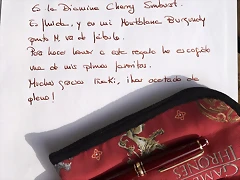 Es la Diamine Cherry Sunburst.
Es fluida, y en mi Montblanc Burgundy
punto M va de fábula.
Para hacer honor a este regalo he escogido
una de mis plumas favoritas.
Muchas gracias Iñaki, ¡has acertado de
pleno!
GAME OF
THRONES